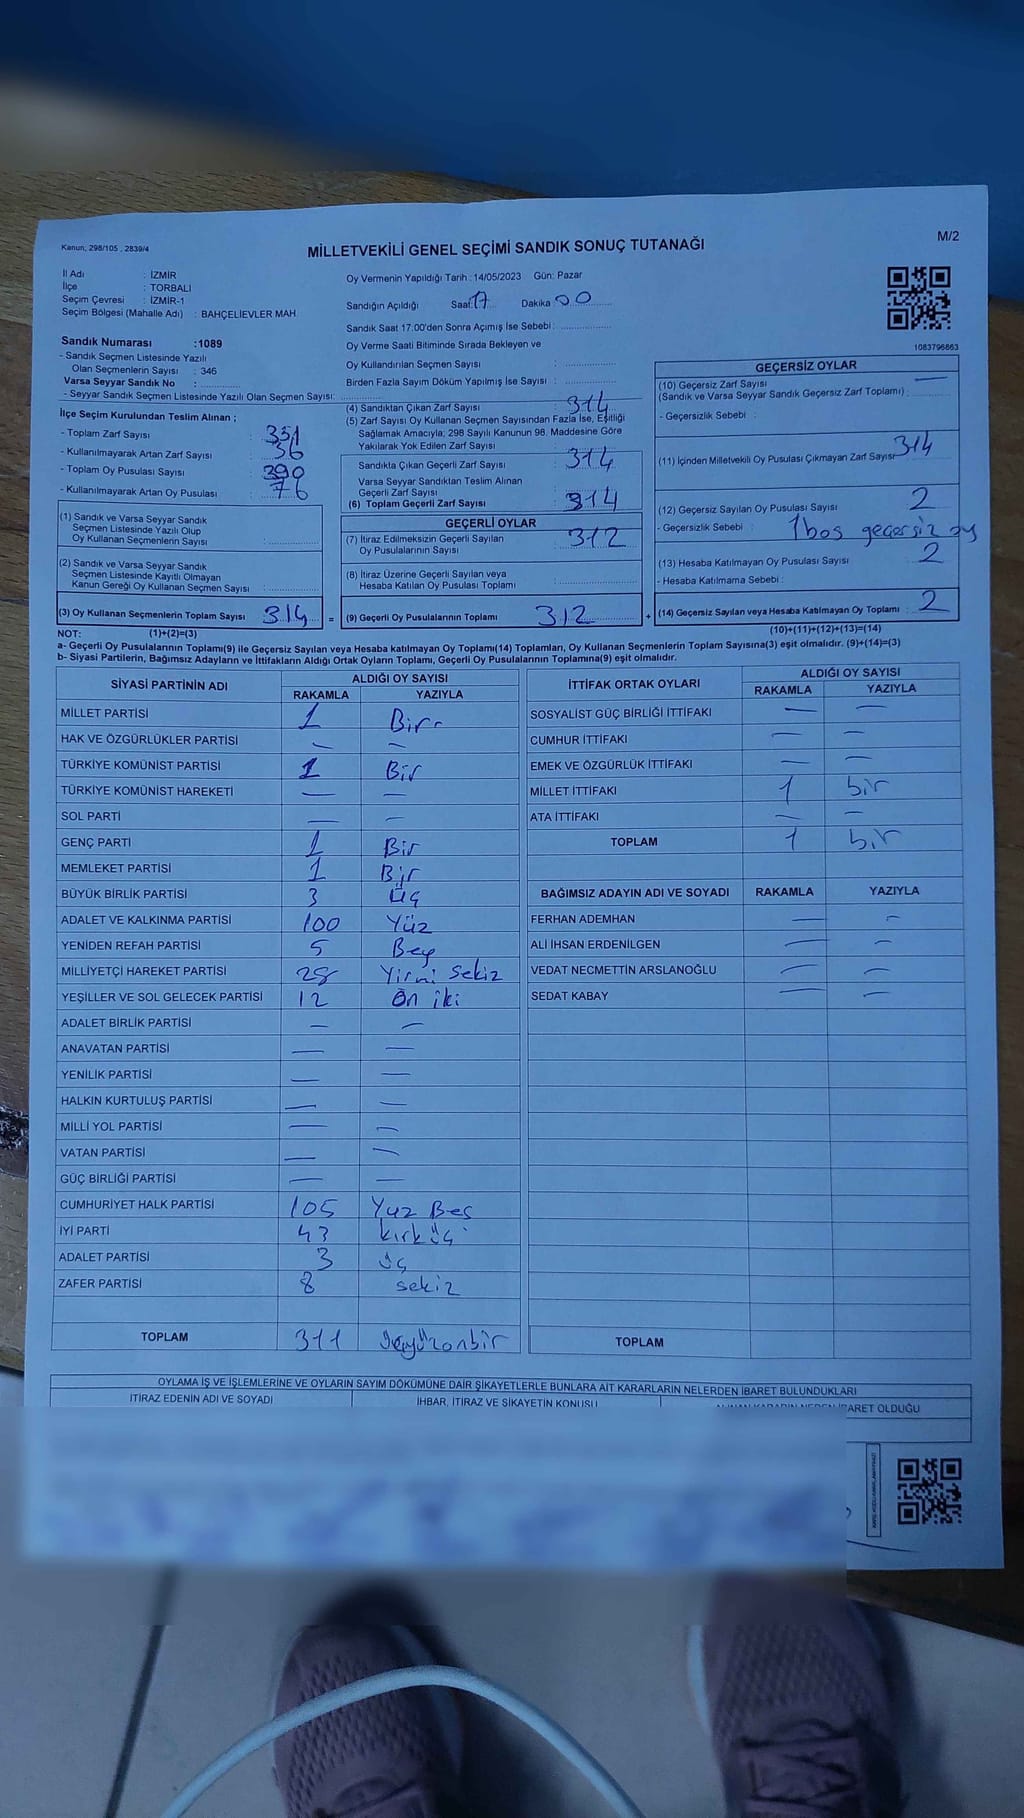 Kanun, 298/105 , 2839/4
MİLLETVEKİLİ GENEL SEÇİMİ SANDIK SONUÇ TUTANAĞI
M/2
İl Adı : İZMİR
İlçe : TORBALI
Seçim Çevresi : İZMİR-1
Seçim Bölgesi (Mahalle Adı) : BAHÇELİEVLER MAH.
Oy Vermenin Yapıldığı Tarih : 14/05/2023 Gün: Pazar
Sandığın Açıldığı Saat 17 Dakika 00
Sandık Saat 17.00'den Sonra Açımış İse Sebebi :
Oy Verme Saati Bitiminde Sırada Bekleyen ve
Oy Kullandırılan Seçmen Sayısı :
Birden Fazla Sayım Döküm Yapılmış İse Sayısı :
1083796863
Sandık Numarası :1089
- Sandık Seçmen Listesinde Yazılı
Olan Seçmenlerin Sayısı : 346
Varsa Seyyar Sandık No :
- Seyyar Sandık Seçmen Listesinde Yazılı Olan Seçmen Sayısı:
İlçe Seçim Kurulundan Teslim Alınan ;
- Toplam Zarf Sayısı : 351
- Kullanılmayarak Artan Zarf Sayısı : 36
- Toplam Oy Pusulası Sayısı : 390
- Kullanılmayarak Artan Oy Pusulası : 76
(1) Sandık ve Varsa Seyyar Sandık
Seçmen Listesinde Yazılı Olup
Oy Kullanan Seçmenlerin Sayısı :
(2) Sandık ve Varsa Seyyar Sandık
Seçmen Listesinde Kayıtlı Olmayan
Kanun Gereği Oy Kullanan Seçmen Sayısı :
(3) Oy Kullanan Seçmenlerin Toplam Sayısı : 314 =
(4) Sandıktan Çıkan Zarf Sayısı : 314
(5) Zarf Sayısı Oy Kullanan Seçmen Sayısından Fazla İse, Eşitliği
Sağlamak Amacıyla; 298 Sayılı Kanunun 98. Maddesine Göre
Yakılarak Yok Edilen Zarf Sayısı :
Sandıkta Çıkan Geçerli Zarf Sayısı : 314
Varsa Seyyar Sandıktan Teslim Alınan
Geçerli Zarf Sayısı :
(6) Toplam Geçerli Zarf Sayısı : 314
GEÇERLİ OYLAR
(7) İtiraz Edilmeksizin Geçerli Sayılan
Oy Pusulalarının Sayısı : 312
(8) İtiraz Üzerine Geçerli Sayılan veya
Hesaba Katılan Oy Pusulası Toplamı :
(9) Geçerli Oy Pusulalarının Toplamı : 312 +
GEÇERSİZ OYLAR
(10) Geçersiz Zarf Sayısı —
(Sandık ve Varsa Seyyar Sandık Geçersiz Zarf Toplamı) :
- Geçersizlik Sebebi :
(11) İçinden Milletvekili Oy Pusulası Çıkmayan Zarf Sayısı : 314
(12) Geçersiz Sayılan Oy Pusulası Sayısı : 2
- Geçersizlik Sebebi : 1 boş geçersiz oy
(13) Hesaba Katılmayan Oy Pusulası Sayısı : 2
- Hesaba Katılmama Sebebi :
(14) Geçersiz Sayılan veya Hesaba Katılmayan Oy Toplamı : 2
NOT: (1)+(2)=(3)
(10)+(11)+(12)+(13)=(14)
a- Geçerli Oy Pusulalarının Toplamı(9) ile Geçersiz Sayılan veya Hesaba katılmayan Oy Toplamı(14) Toplamları, Oy Kullanan Seçmenlerin Toplam Sayısına(3) eşit olmalıdır. (9)+(14)=(3)
b- Siyasi Partilerin, Bağımsız Adayların ve İttifakların Aldığı Ortak Oyların Toplamı, Geçerli Oy Pusulalarının Toplamına(9) eşit olmalıdır.
SİYASİ PARTİNİN ADI ALDIĞI OY SAYISI
RAKAMLA YAZIYLA
MİLLET PARTİSİ 1 Bir
HAK VE ÖZGÜRLÜKLER PARTİSİ — —
TÜRKİYE KOMÜNİST PARTİSİ 1 Bir
TÜRKİYE KOMÜNİST HAREKETİ — —
SOL PARTİ — —
GENÇ PARTİ 1 Bir
MEMLEKET PARTİSİ 1 Bir
BÜYÜK BİRLİK PARTİSİ 3 Üç
ADALET VE KALKINMA PARTİSİ 100 Yüz
YENİDEN REFAH PARTİSİ 5 Beş
MİLLİYETÇİ HAREKET PARTİSİ 28 Yirmi Sekiz
YEŞİLLER VE SOL GELECEK PARTİSİ 12 On iki
ADALET BİRLİK PARTİSİ — —
ANAVATAN PARTİSİ — —
YENİLİK PARTİSİ — —
HALKIN KURTULUŞ PARTİSİ — —
MİLLİ YOL PARTİSİ — —
VATAN PARTİSİ — —
GÜÇ BİRLİĞİ PARTİSİ — —
CUMHURİYET HALK PARTİSİ 105 Yüz Beş
İYİ PARTİ 43 kırküç
ADALET PARTİSİ 3 üç
ZAFER PARTİSİ 8 sekiz
TOPLAM 311 üçyüzonbir
İTTİFAK ORTAK OYLARI ALDIĞI OY SAYISI
RAKAMLA YAZIYLA
SOSYALİST GÜÇ BİRLİĞİ İTTİFAKI — —
CUMHUR İTTİFAKI — —
EMEK VE ÖZGÜRLÜK İTTİFAKI — —
MİLLET İTTİFAKI 1 bir
ATA İTTİFAKI — —
TOPLAM 1 bir
BAĞIMSIZ ADAYIN ADI VE SOYADI RAKAMLA YAZIYLA
FERHAN ADEMHAN — —
ALİ İHSAN ERDENİLGEN — —
VEDAT NECMETTİN ARSLANOĞLU — —
SEDAT KABAY — —
TOPLAM
OYLAMA İŞ VE İŞLEMLERİNE VE OYLARIN SAYIM DÖKÜMÜNE DAİR ŞİKAYETLERLE BUNLARA AİT KARARLARIN NELERDEN İBARET BULUNDUKLARI
İTİRAZ EDENİN ADI VE SOYADI İHBAR, İTİRAZ VE ŞİKAYETİN KONUSU İBARET OLDUĞU